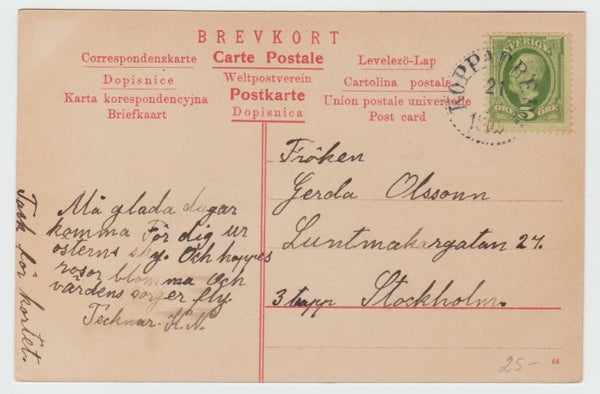 BREVKORT
Correspondenzkarte Carte Postale Levelező-Lap
Dopisnice Weltpostverein Cartolina postale
Karta korespondencyjna Postkarte Union postale universelle
Briefkaart Dopisnica Post card
SVERIGE
5
ÖRE ÖRE
KOPPARBERG
21
Fröken
Gerda Olssonn
Luntmakargatan 27.
3 trapp Stockholm.
Må glada dagar
komma För dig ur
osterns sky. Och hoppes
rosor blomma och
värdens sorger fly.
Tecknar. H.N.
Tack för kortet.
25-
64